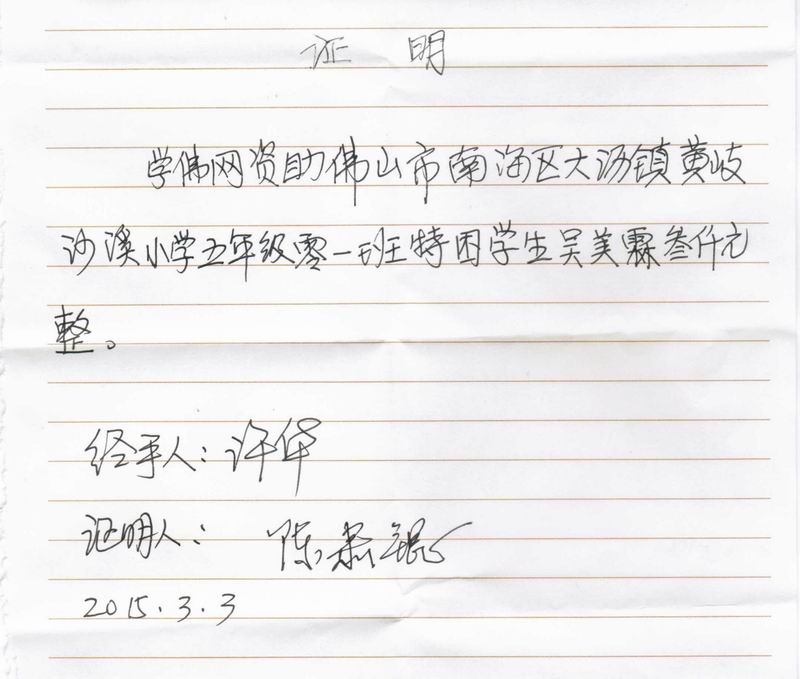 证 明
学佛网资助佛山市南海区大沥镇黄岐
沙溪小学五年级零一班特困学生吴美霖叁仟元
整。
经手人：许华
证明人：陈
2015.3.3